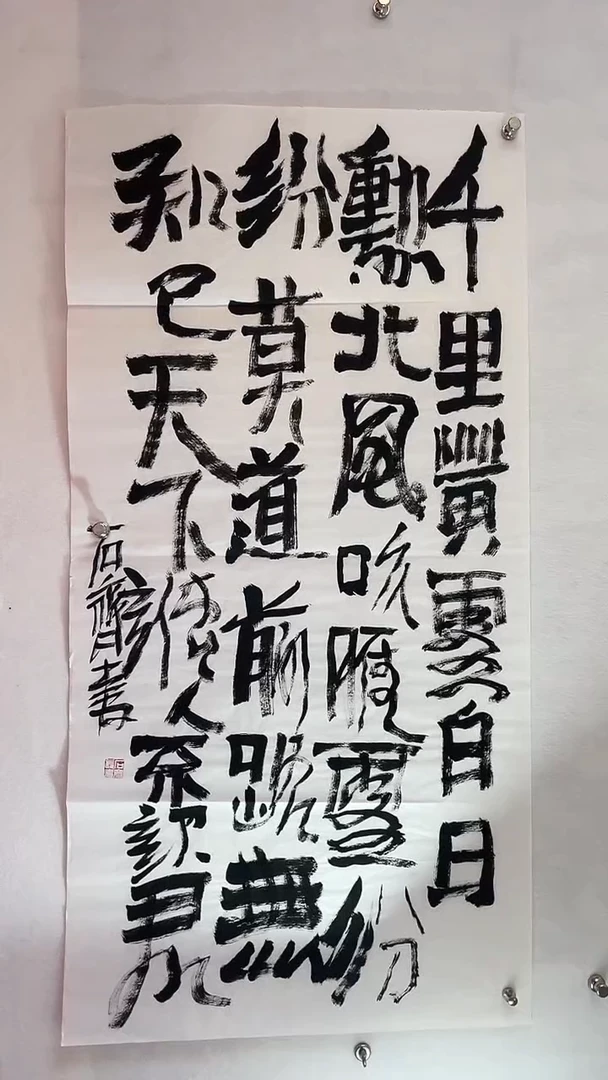 千里黃雲白日
勳北風吹雁雪紛
紛莫道前路無
知已天下誰人不識君
石齊書